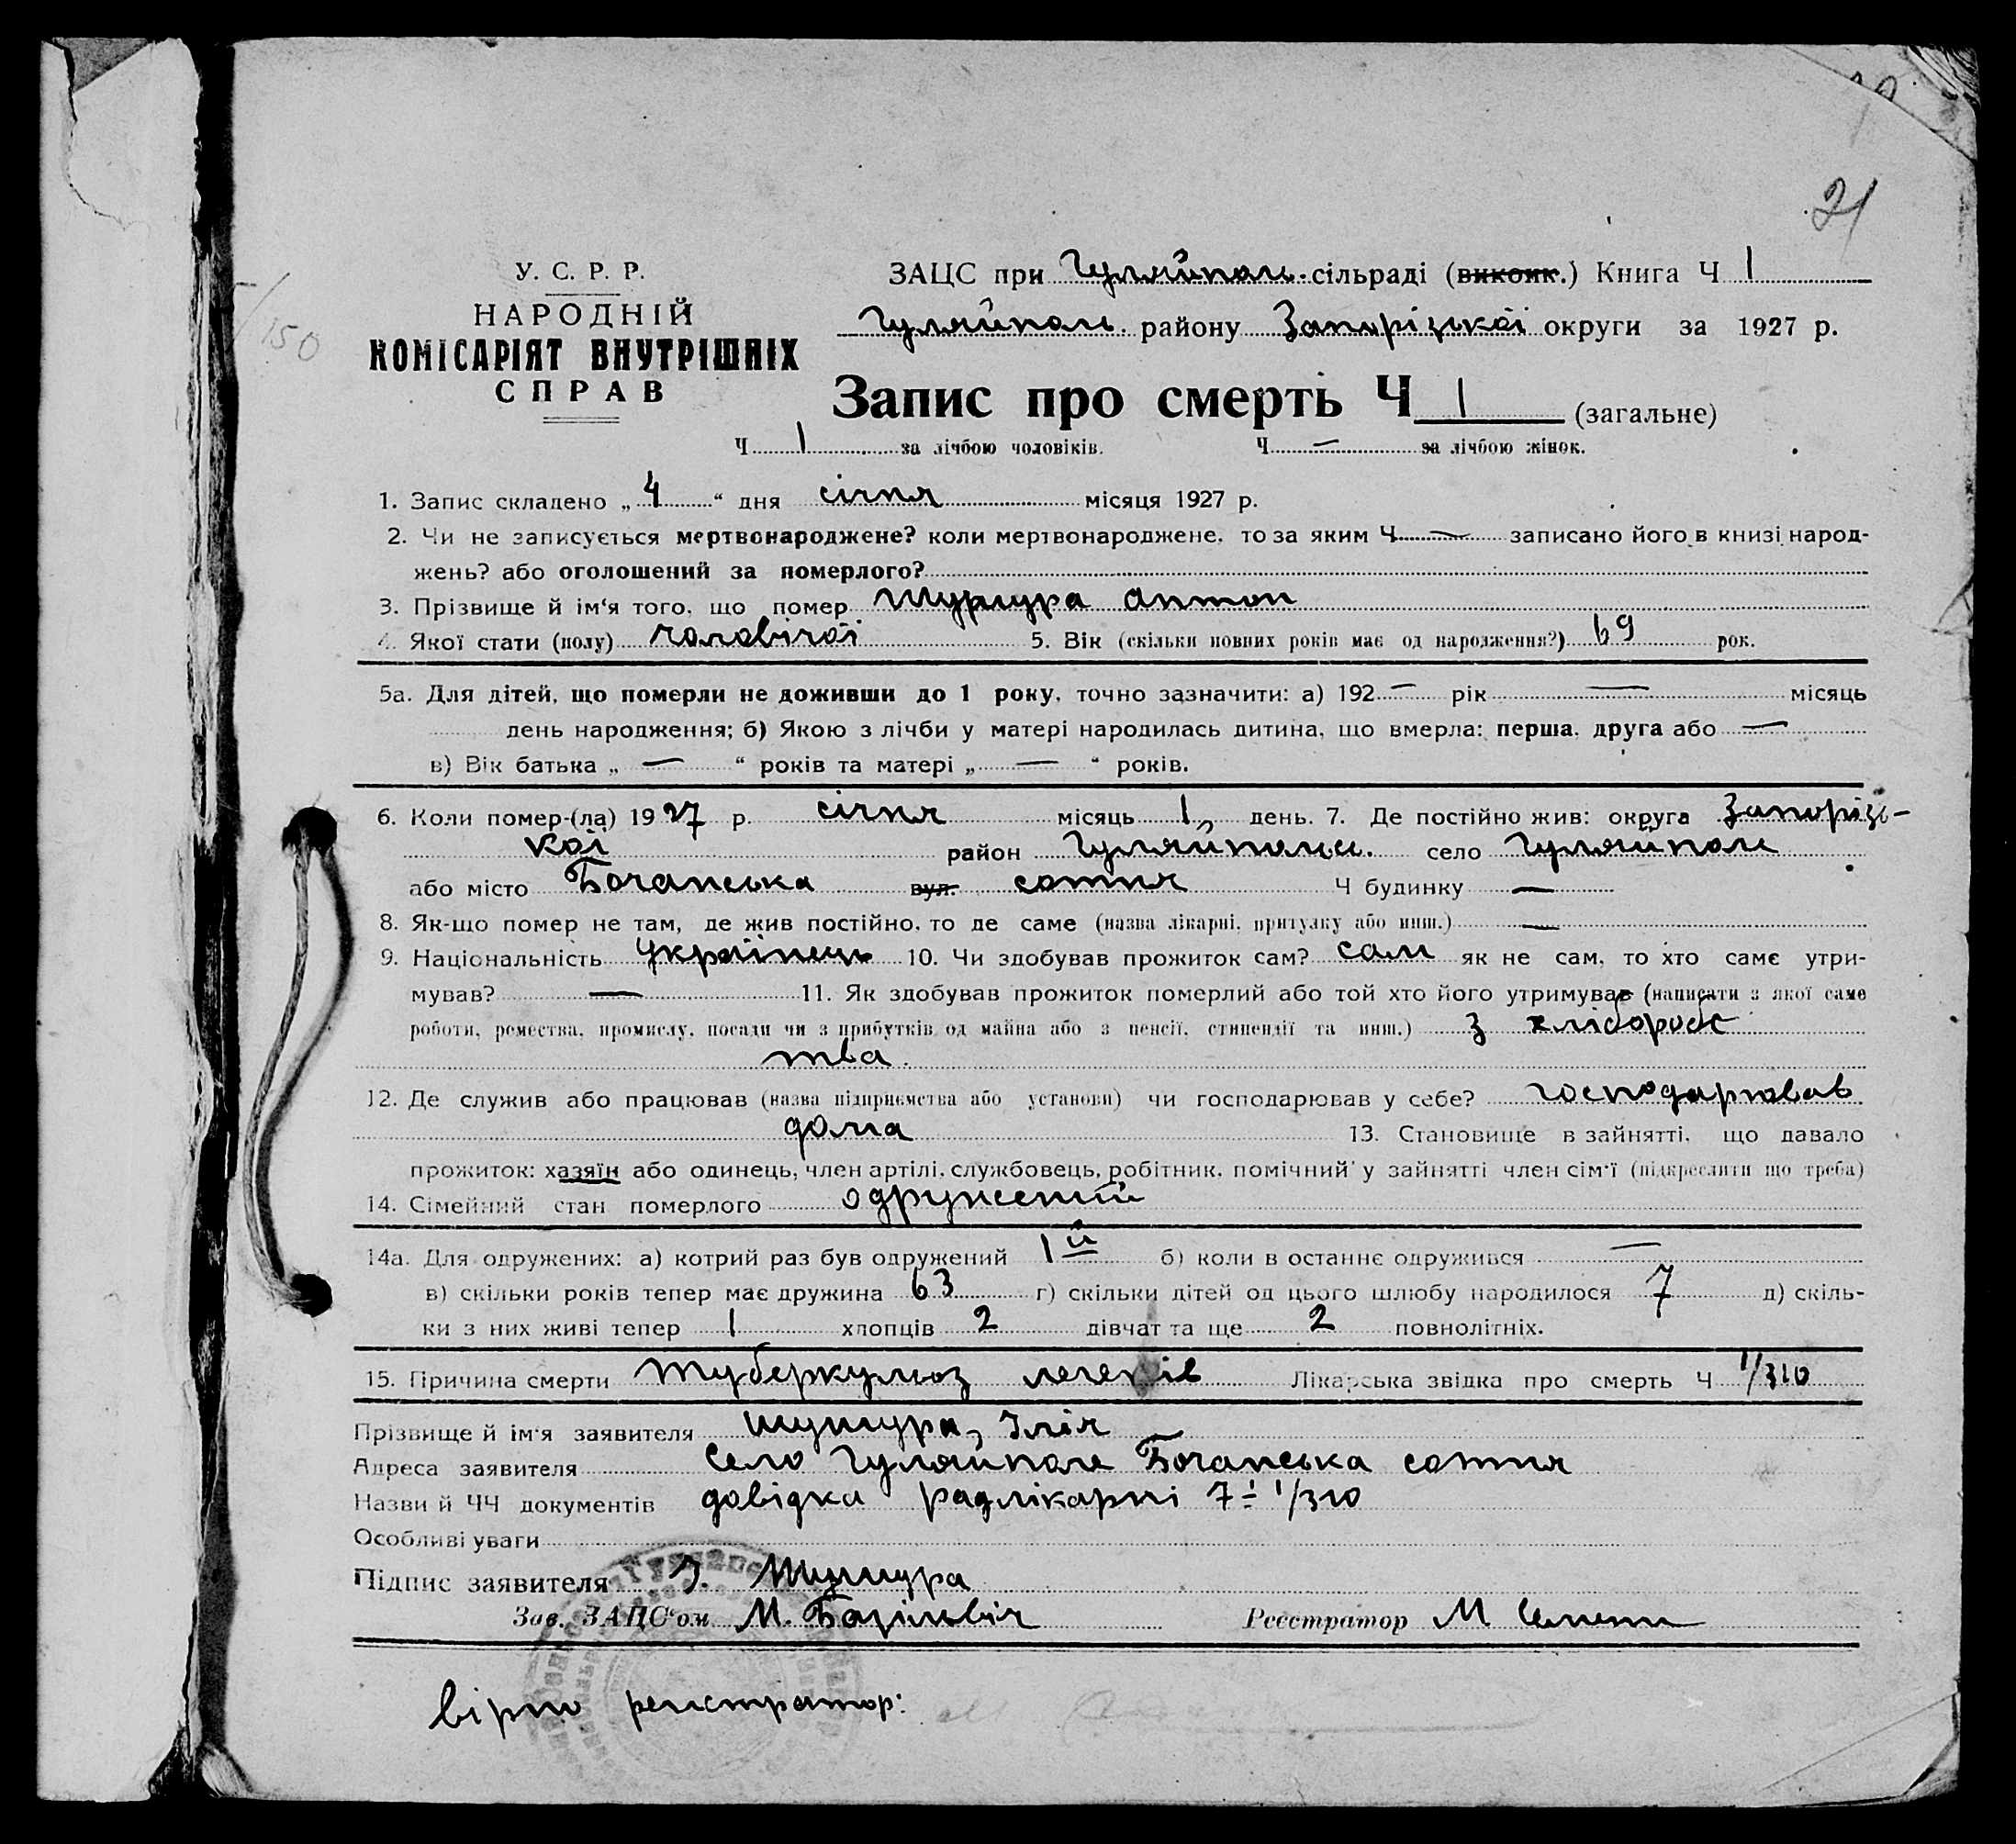 21
У. С. Р. Р.
НАРОДНІЙ
КОМІСАРІЯТ ВНУТРІШНІХ
СПРАВ
150
ЗАЦС при Гуляйпол. сільраді (виконк.) Книга Ч 1
Гуляйпол. району Запорізької округи за 1927 р.
Запис про смерть Ч 1 (загальне)
Ч 1 за лічбою чоловіків. Ч — за лічбою жінок.
1. Запис складено „ 4 “ дня січня місяця 1927 р.
2. Чи не записується мертвонароджене? коли мертвонароджене, то за яким Ч — записано його в книзі народ-
жень? або оголошений за померлого?
3. Прізвище й ім‘я того, що помер Шушура Антон
4. Якої стати (полу) чоловічої 5. Вік (скільки повних років має од народження?) 69 рок.
5а. Для дітей, що померли не доживши до 1 року, точно зазначити: а) 192 — рік — місяць
день народження; б) Якою з лічби у матері народилась дитина, що вмерла: перша, друга або —
в) Вік батька „ — “ років та матері „ — “ років.
6. Коли помер-(ла) 19 27 р. січня місяць 1 день. 7. Де постійно жив: округа Запорізь-
кої район Гуляйпольс. село Гуляйполе
або місто Бочанська вул. сотня Ч будинку —
8. Як-що помер не там, де жив постійно, то де саме (назва лікарні, притулку або инш.) —
9. Національність Українець 10. Чи здобував прожиток сам? сам як не сам, то хто саме утри-
мував? — 11. Як здобував прожиток померлий або той хто його утримував (написати з якої саме
роботи, ремества, промислу, посади чи з прибутків од майна або з пенсії, стипендії та инш.) з хлібороб
тва.
12. Де служив або працював (назва підприємства або установи) чи господарював у себе? господарював
дома 13. Становище в зайнятті, що давало
прожиток: хазяїн або одинець, член артілі, службовець, робітник, помічний у зайнятті член сім‘ї (підкреслити що треба)
14. Сімейний стан померлого одружений
14а. Для одружених: а) котрий раз був одружений 1й б) коли в останнє одружився —
в) скільки років тепер має дружина 63 г) скільки дітей од цього шлюбу народилося 7 д) скіль-
ки з них живі тепер 1 хлопців 2 дівчат та ще 2 повнолітніх.
15. Причина смерти туберкульоз легенів Лікарська звідка про смерть Ч 1/310
Прізвище й ім‘я заявителя Шушура, Ілія
Адреса заявителя село Гуляйполе Бочанська сотня
Назви й ЧЧ документів довідка радлікарні 1/310
Особливі уваги
Підпис заявителя І. Шушура
Зав. ЗАЦС‘ом М. Реєстратор М
вірно реєстратор: